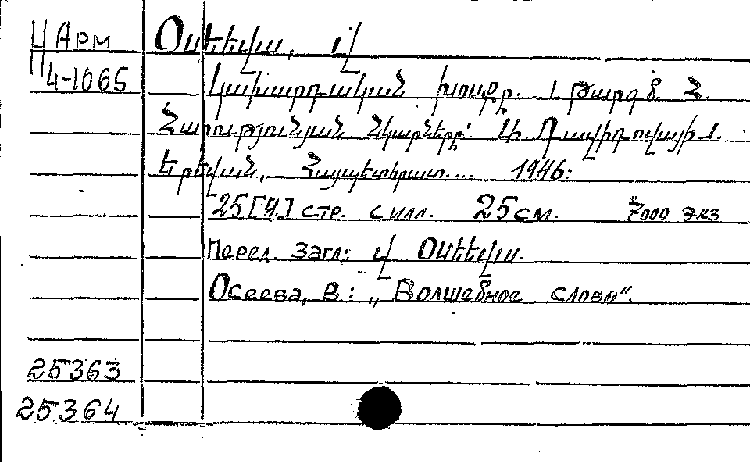 Ц Арм Օսեեվա, Վ
П4-1065 Կախարդական խոսքը. / թարգմ. Հ.
Հարությունյան Նկարները՝ Ա. Դավիդովայի /.
Երեվան, Հայպետհրատ... 1946։
25[4] стр. с илл. 25 см. 7000 экз
Перел. загл: Վ Օսեեվա.
Осеева, В.: „Волшебное слово“.
25363
25364